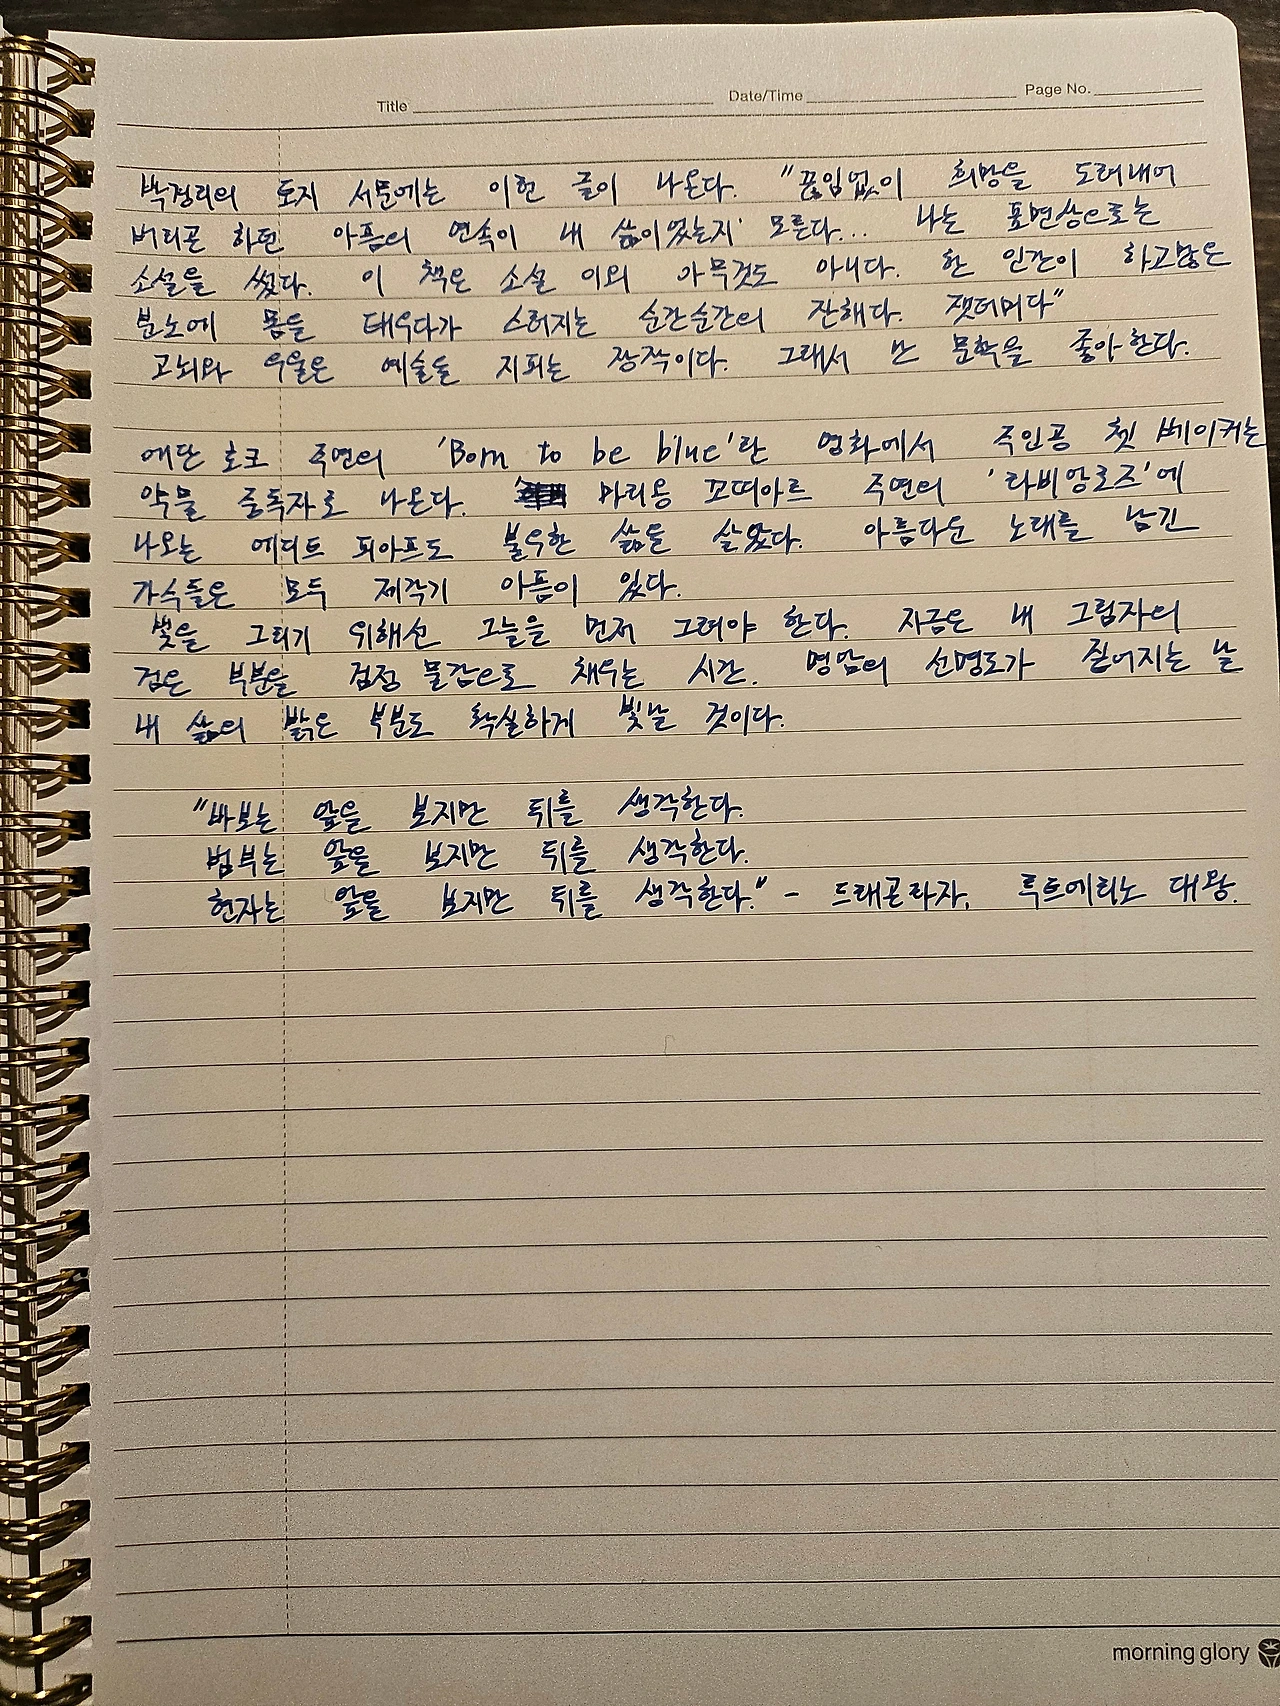 Title Date/Time Page No.
박경리의 토지 서문에는 이런 글이 나온다. "끊임없이 희망을 도려내어
버리곤 하던 아픔의 연속이 내 삶이었는지 모른다... 나는 표면상으로는
소설을 썼다. 이 책은 소설 이외 아무것도 아니다. 한 인간이 하고많은
분노에 몸을 태우다가 스러지는 순간순간의 잔해다. 잿더미다"
고뇌와 우울은 예술을 지피는 장작이다. 그래서 난 문학을 좋아한다.
에단 호크 주연의 'Born to be blue'란 영화에서 주인공 쳇 베이커는
약물 중독자로 나온다. 마리옹 꼬띠아르 주연의 '라비앙로즈'에
나오는 에디트 피아프도 불우한 삶을 살았다. 아름다운 노래를 남긴
가수들은 모두 제각기 아픔이 있다.
빛을 그리기 위해선 그늘을 먼저 그려야 한다. 지금은 내 그림자의
검은 부분을 검정 물감으로 채우는 시간. 명암의 선명도가 짙어지는 날
내 삶의 밝은 부분도 확실하게 빛날 것이다.
"바보는 앞을 보지만 뒤를 생각한다.
범부는 앞을 보지만 뒤를 생각한다.
현자는 앞을 보지만 뒤를 생각한다." - 드래곤라자, 루트에리노 대왕.
morning glory